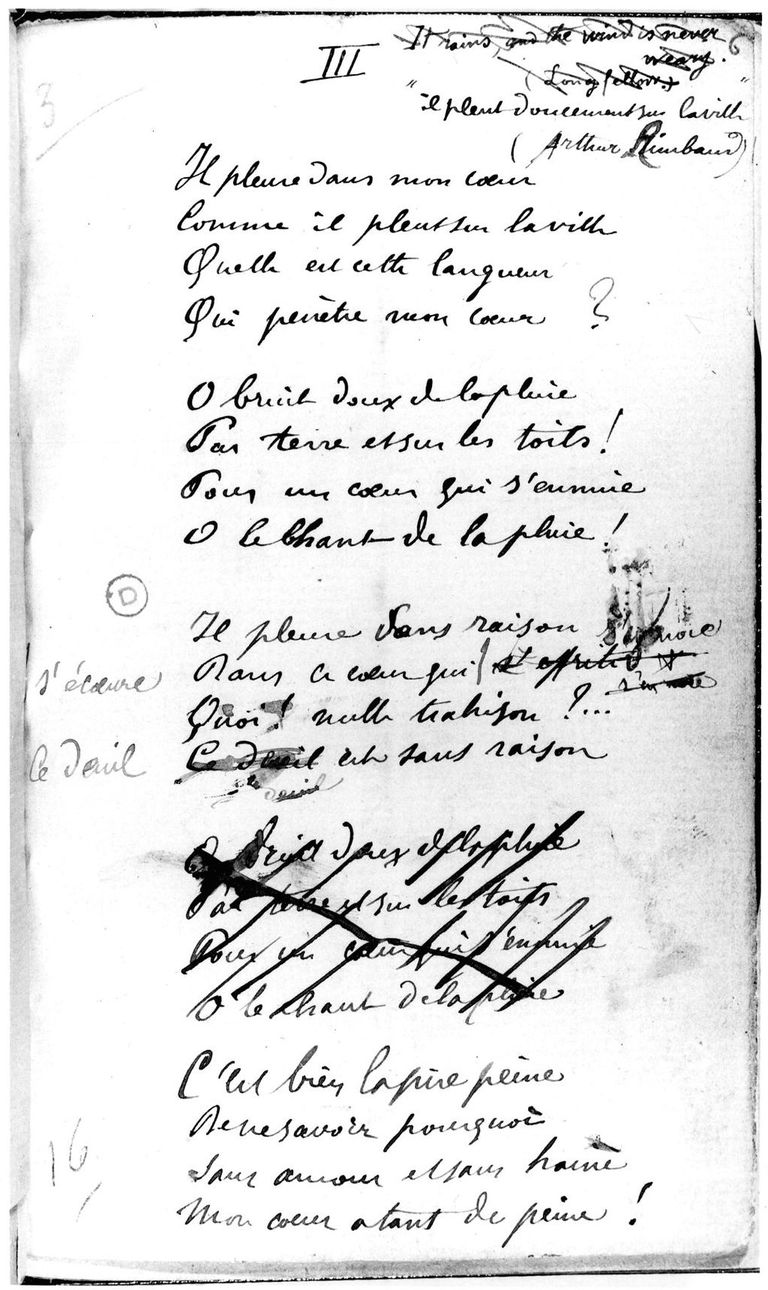 III
It rains, and the wind is never
weary.
(Longfellow.)
6
3
"il pleut doucement sur la ville"
(Arthur Rimbaud)
Il pleure dans mon cœur
Comme il pleut sur la ville
Quelle est cette langueur
Qui penètre mon cœur ?
O bruit doux de la pluie
Par terre et sur les toits !
Pour un cœur qui s'ennuie
O le chant de la pluie !
D
Il pleure sans raison
s'écœure
Dans ce cœur qui
Quoi ! nulle trahison ?...
le deuil
Ce deuil est sans raison
deuil
O bruit doux de la pluie
Par terre et sur les toits
Pour un cœur qui s'ennuie
O le chant de la pluie
C'est bien la pire peine
De ne savoir pourquoi
16
Sans amour et sans haine
Mon cœur a tant de peine !